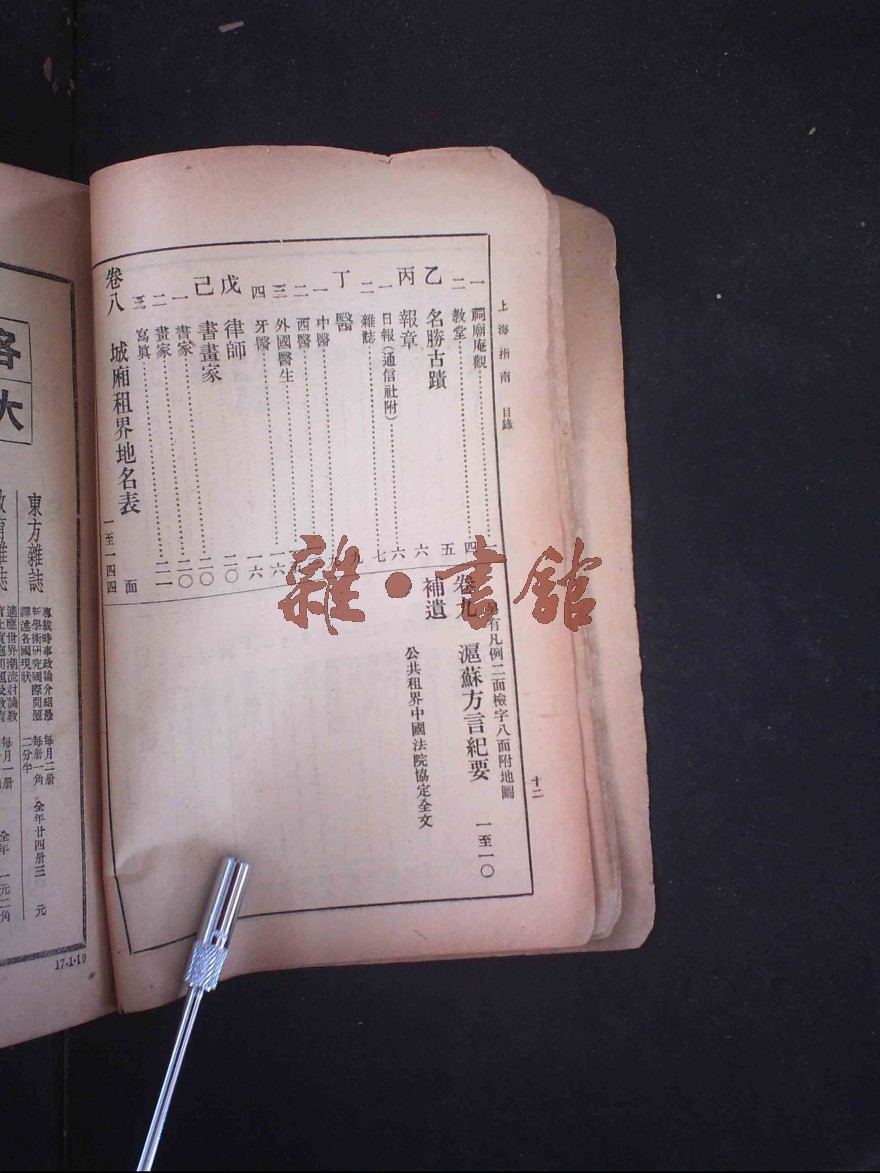 上海指南 目錄
十二
一 祠廟庵觀
二 教堂 四
乙 名勝古蹟 五
丙 報章 六
一 日報(通信社附) 六
二 雜誌 七
丁 醫 九
一 中醫
二 西醫
三 外國醫生 一六
四 牙醫 一六
戊 律師 二〇
己 書畫家 二〇
一 書家 二〇
二 畫家 二一
三 寫眞 面
卷八 城廂租界地名表 一至一四四
有凡例二面檢字八面附地圖
卷九 滬蘇方言紀要 一至一〇
補遺
公共租界中國法院協定全文
雜·書館
東方雜誌
專載時事政論介紹最
新學術研究國際問題
譯述各國現狀
每月二册
每册一角
二分半
全年廿四册三元
適應世界潮流討論教
每月一册
全年一元二角
17·1·19